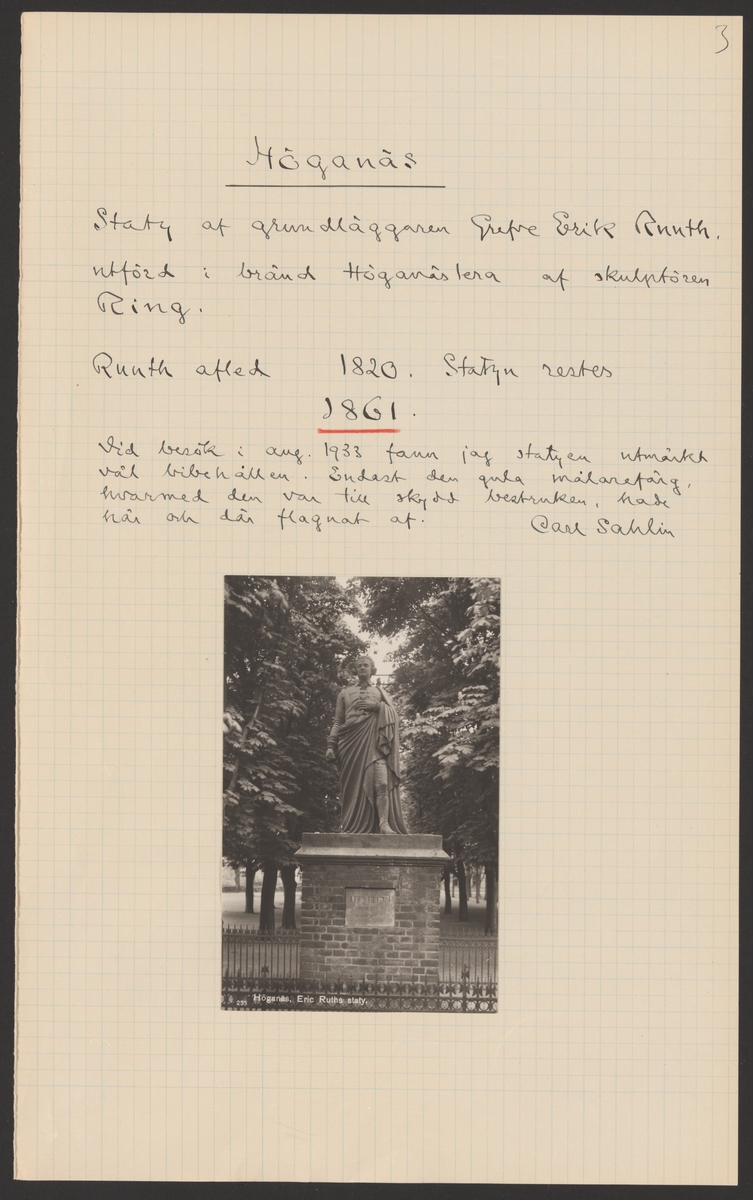 3
Höganäs
Staty af grundläggaren Grefve Erik Ruuth,
utförd i bränd Höganäslera af skulptören
Ring.
Ruuth afled 1820. Statyn restes
1861.
Vid besök i aug. 1933 fann jag statyen utmärkt
väl bibehållen. Endast den gula målarefärg,
hvarmed den var till skydd bestruken, hade
här och där flagnat af. Carl Sahlin
233 Höganäs, Eric Ruths staty.